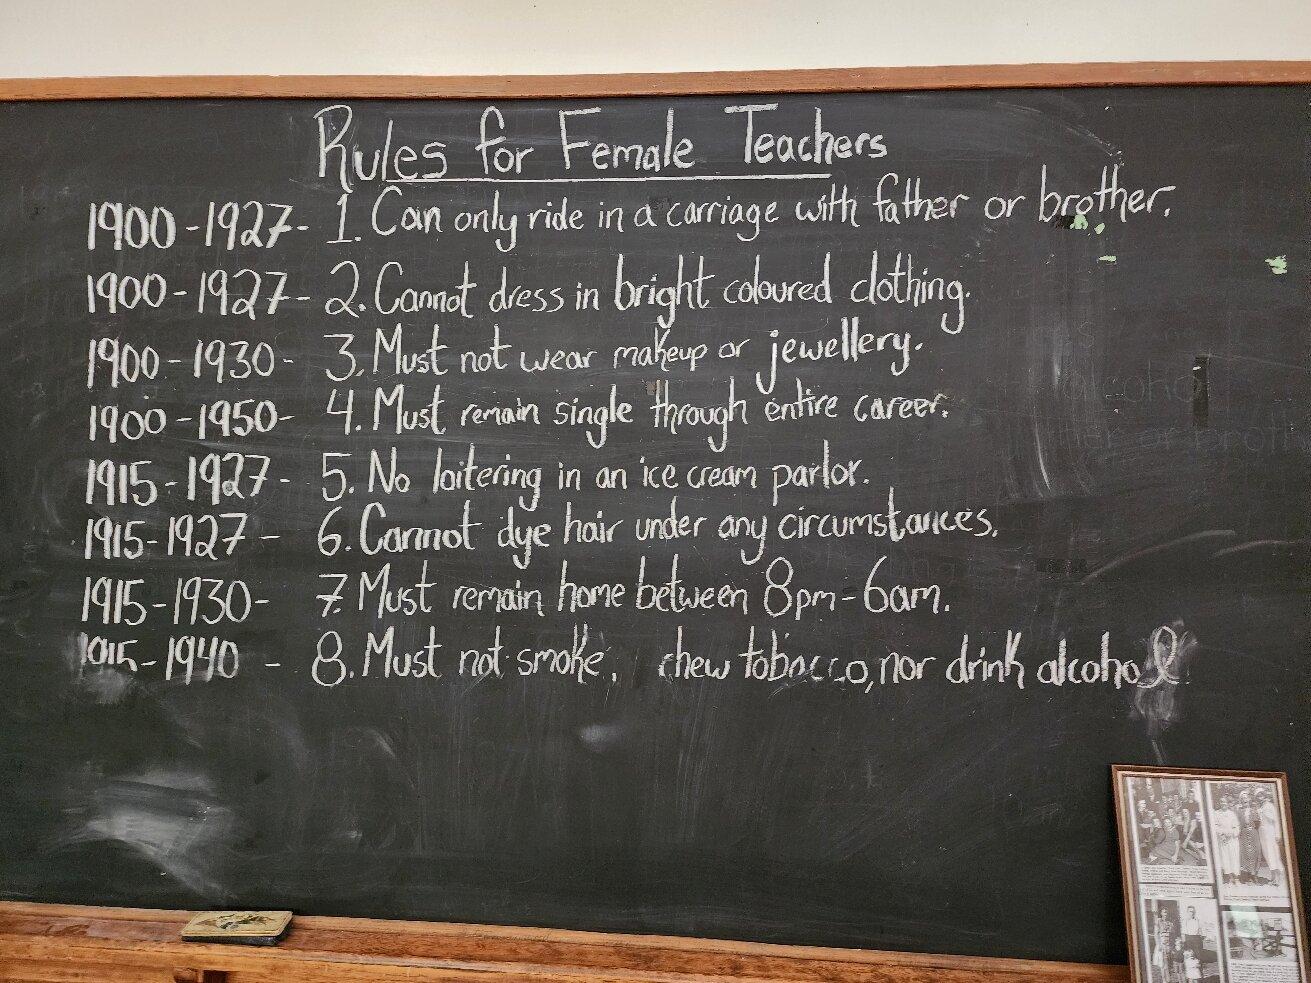 Rules for Female Teachers
1900-1927- 1. Can only ride in a carriage with father or brother.
1900-1927- 2. Cannot dress in bright coloured clothing.
1900-1930- 3. Must not wear makeup or jewellery.
1900-1950- 4. Must remain single through entire career.
1915-1927- 5. No loitering in an ice cream parlor.
1915-1927- 6. Cannot dye hair under any circumstances.
1915-1930- 7. Must remain home between 8pm-6am.
1915-1940 - 8. Must not smoke, chew tobacco, nor drink alcohol